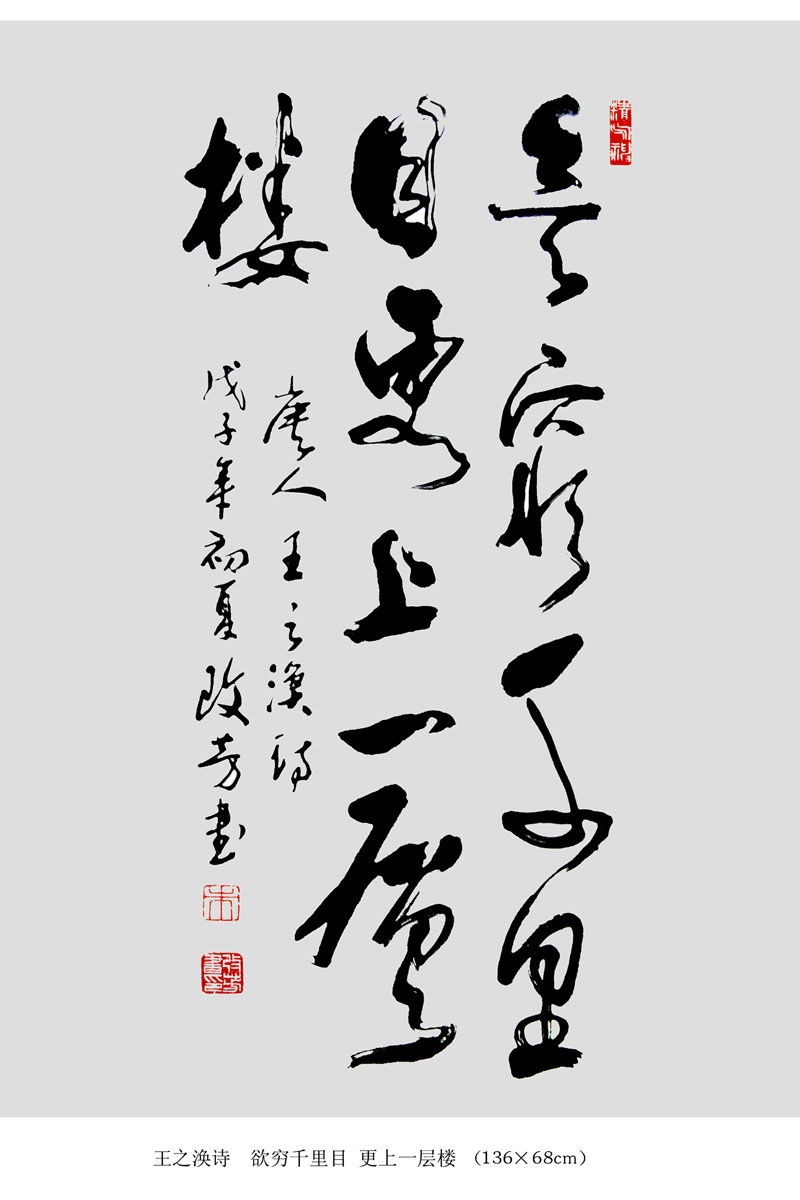 欲窮千里
目更上一層
樓
唐人王之渙詩
戊子年初夏改芳書
朱
改芳書印
王之涣诗 欲穷千里目 更上一层楼 (136×68cm)